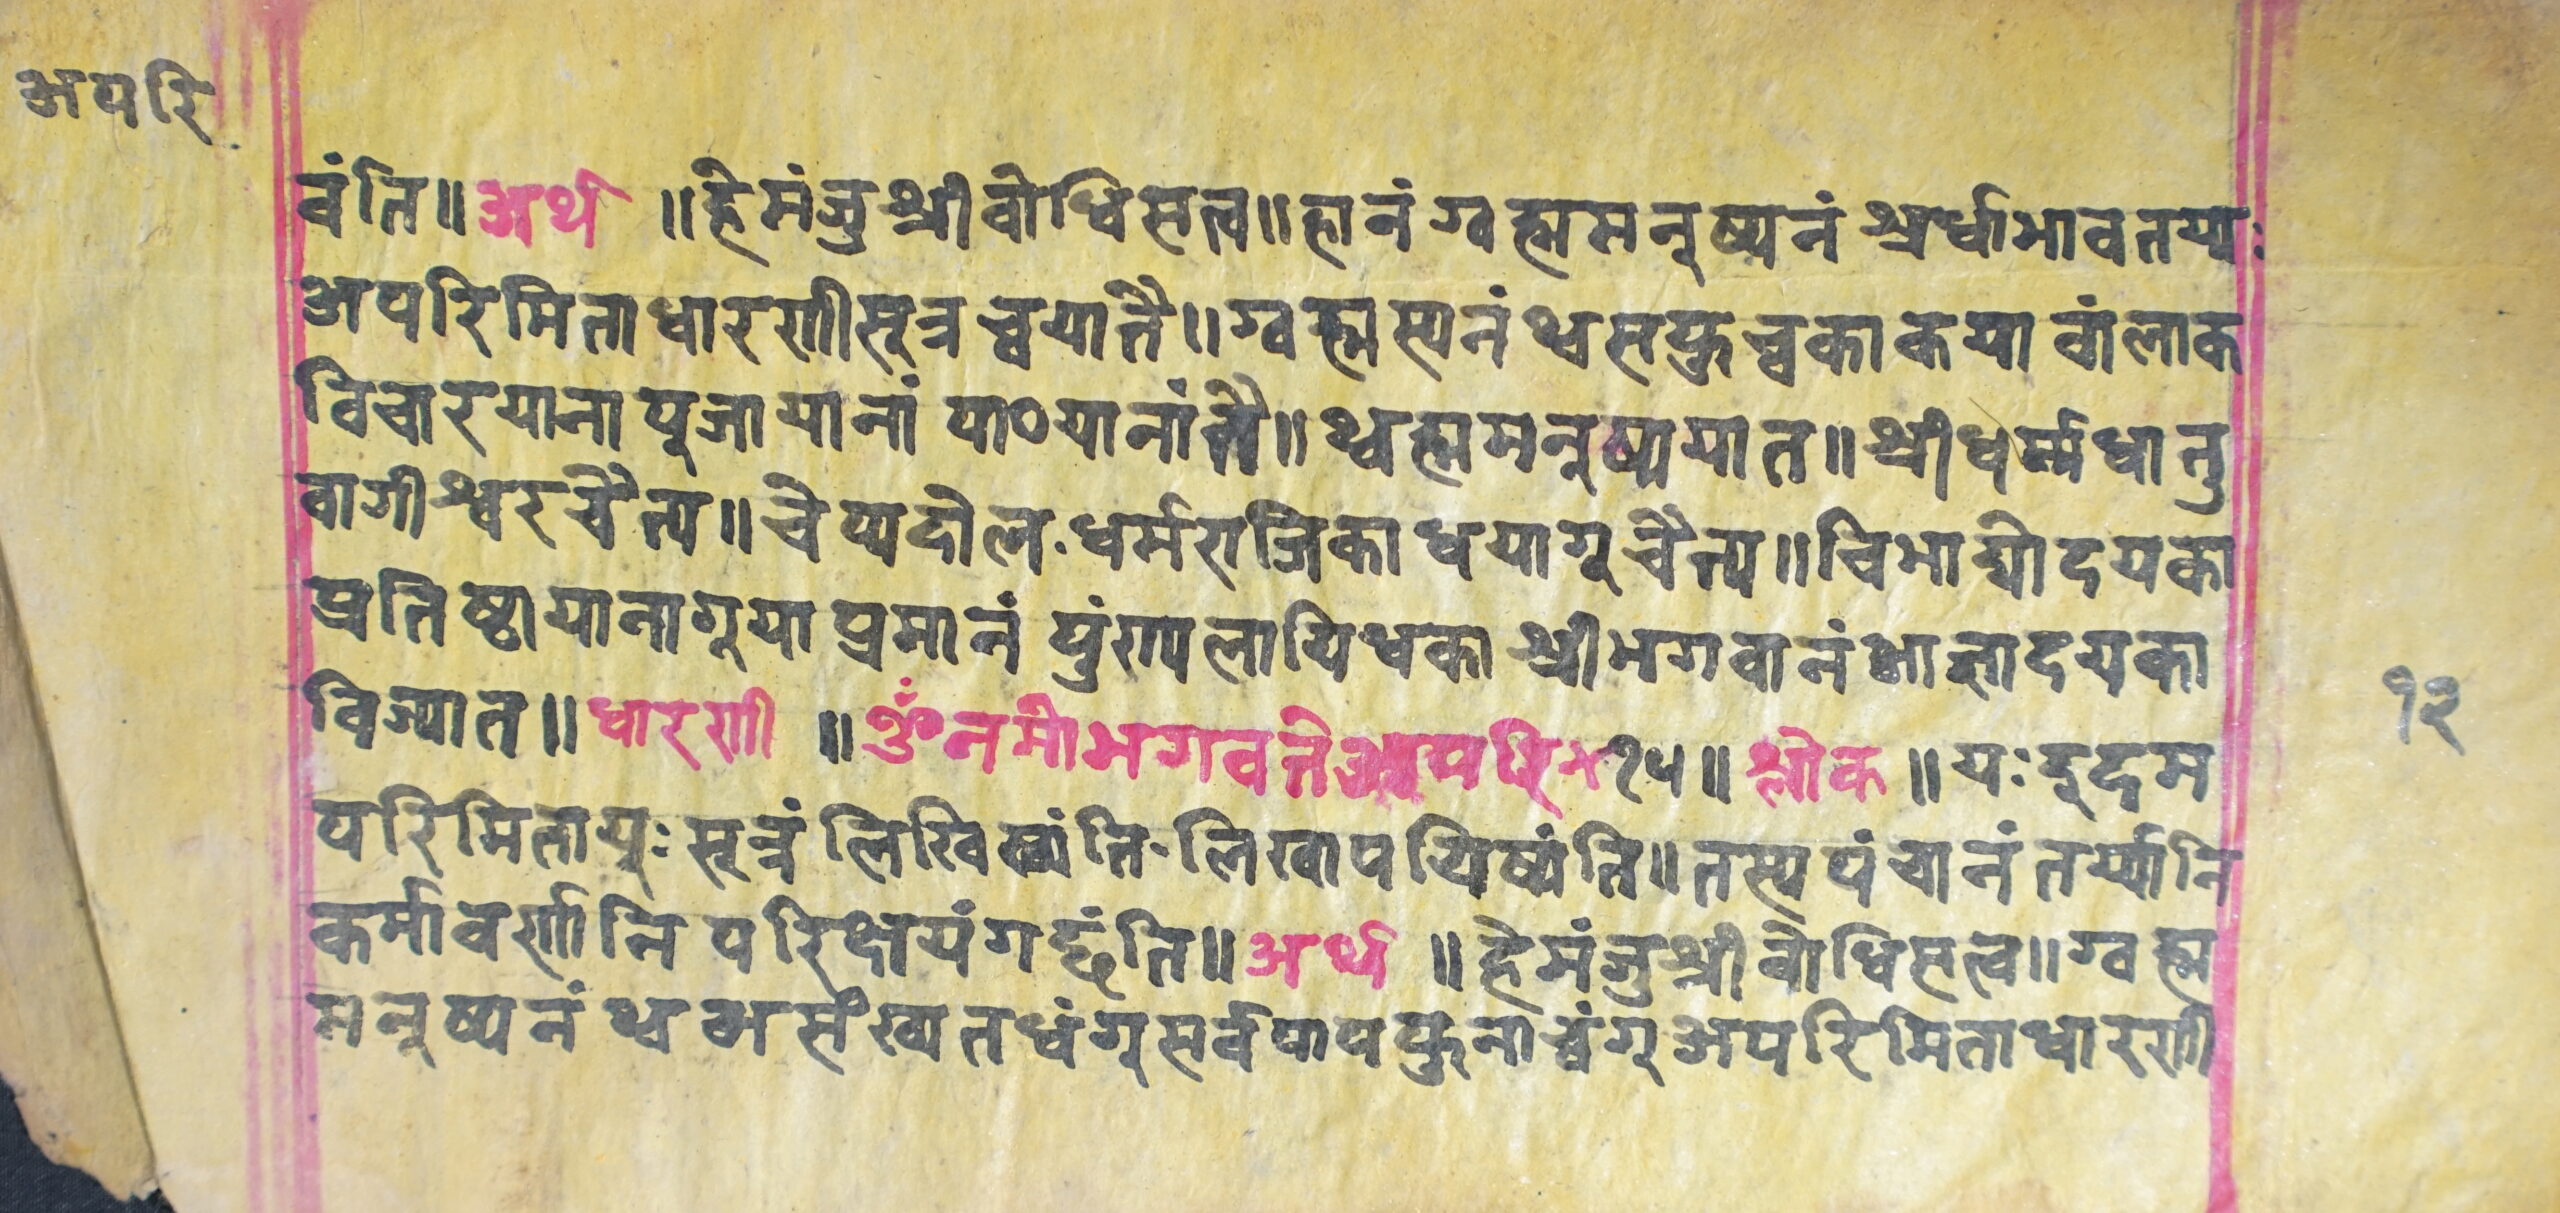 अपरि
वंति॥ अर्थ ॥हेमंजुश्रीवोधिसत्व॥हानं ग्वह्ममनूष्यनं श्रर्धाभावतयाः
अपरिमिताधारणीसूत्रच्वयातै॥ग्वह्मस्यनं थ्वसफुच्वकाकया वांलाक
विचारयाना पुजायानां पाठयानांतै॥थ्वह्ममनूष्ययात॥श्रीधर्म्मधातु
वागीश्वरचैत्य॥चेप्यदोल.धर्मराजिकाधयागू चैत्य॥चिभाद्योदयका
प्रतिष्ठायानागूया प्रमानं पुंण्यलायिधका श्रीभगवानंआज्ञादयका
विज्यात॥ धारणी ॥ॐनमोभगवतेअपरिम१५॥ श्लोक ॥यःइदम
परिमितायुःसूत्रंलिखिष्यंति.लिखापयिष्यंति॥तस्यपंचानंतर्य्यानि
कर्मावर्णानिपरिक्षयंगछंति॥अर्थ ॥हेमंजुश्रीवोधिसत्व॥ग्वह्म
मनूष्यनंथ्वअसंख्यातधंगूसर्वपापफुनाच्वंगू अपरिमिताधारणी
१२